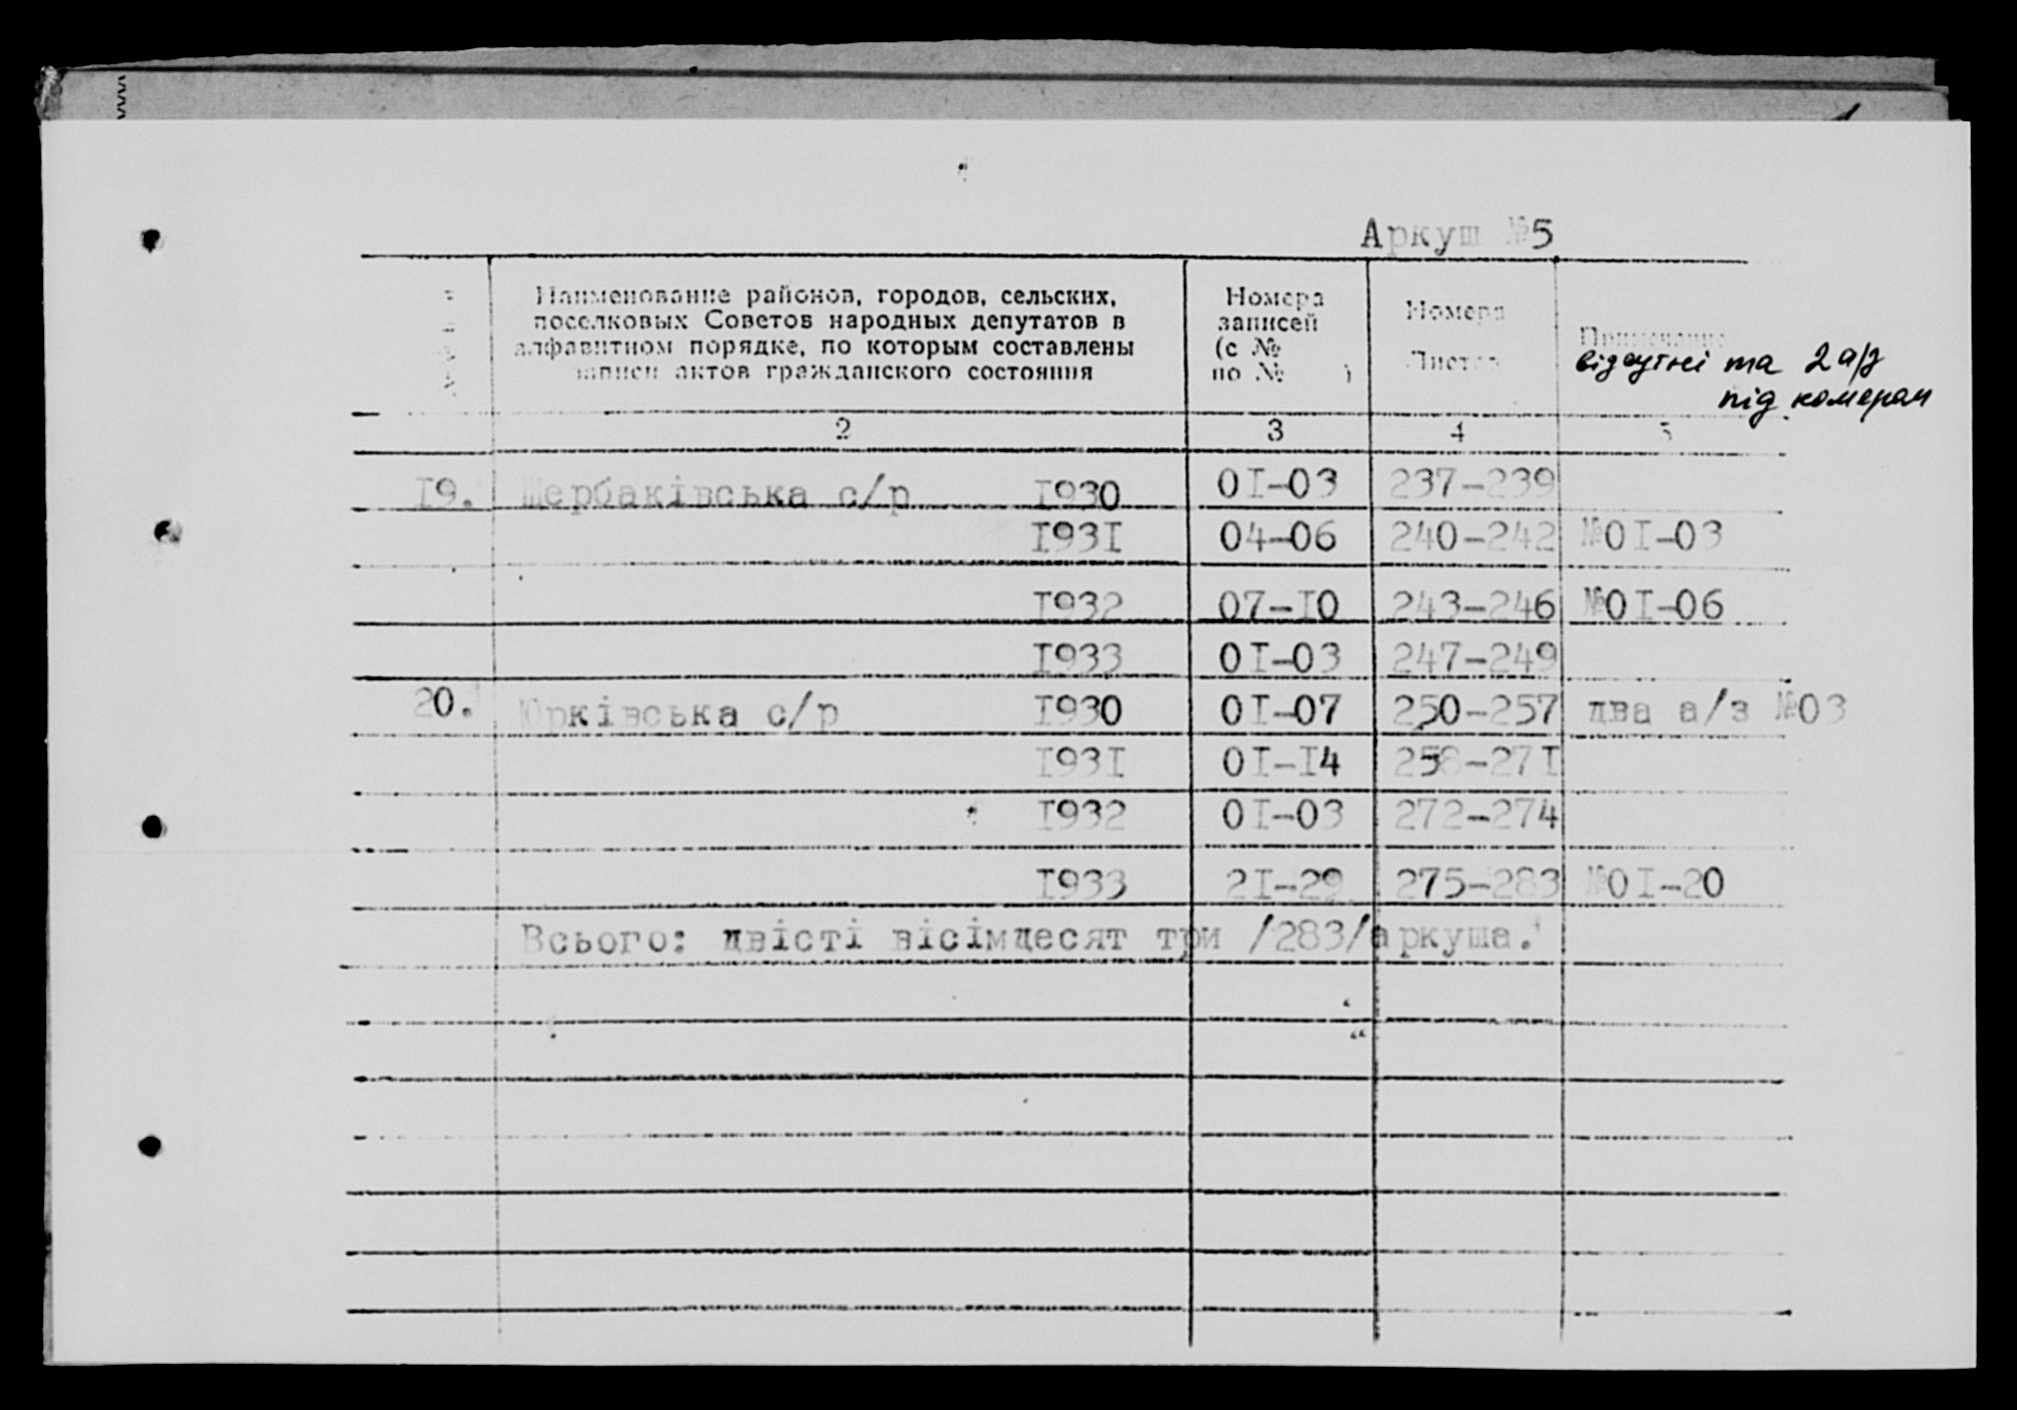 Аркуш №5
Наименование районов, городов, сельских,
поселковых Советов народных депутатов в
алфавитном порядке, по которым составлены
записи актов гражданского состояния
Номера
записей
(с №
по № )
Номера
Листов
Примечание
відсутні та 2 а/з
під номером
2 3 4 5
19. Щербаківська с/р 1930 01-03 237-239
1931 04-06 240-242 №01-03
1932 07-10 243-246 №01-06
1933 01-03 247-249
20. Юрківська с/р 1930 01-07 250-257 два а/з №03
1931 01-14 258-271
1932 01-03 272-274
1933 21-29 275-283 №01-20
Всього: двісті вісімдесят три /283/аркуша.